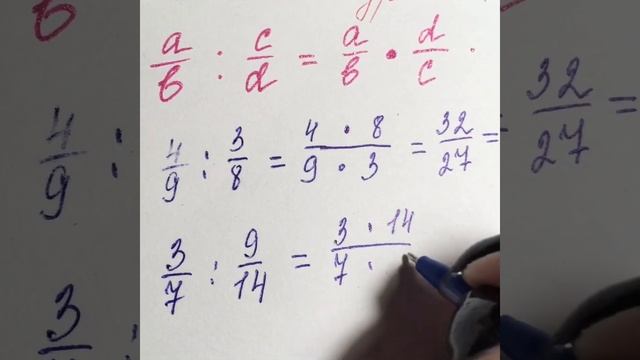 a/b : c/d = a/b • d/c
4/9 : 3/8 = 4 • 8/9 • 3 = 32/27 =
3/7 : 9/14 = 3 • 14/7 •